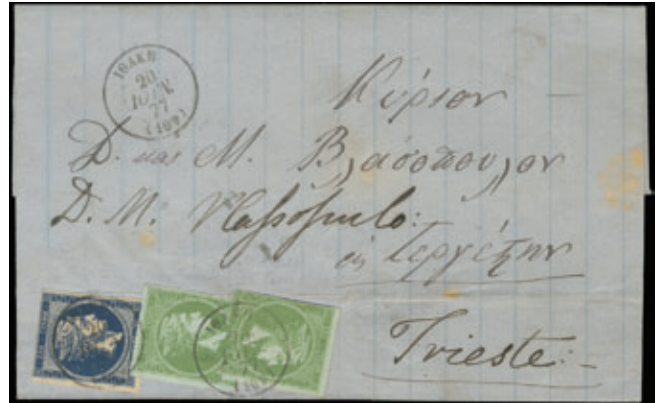 ΙΘΑΚΗ
20
77
(109)
Κύριον
Δ. και Μ. Βλασόπουλον
D. M. Vlassopulo:
εις Τεργέστην
Trieste:-